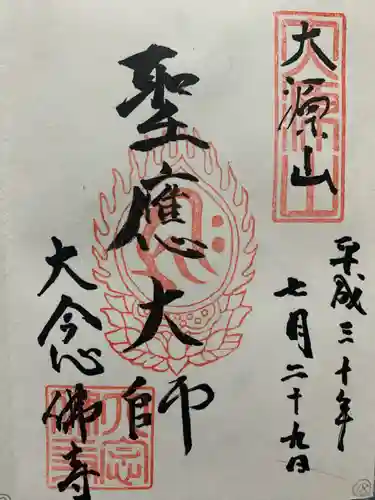 大源山
平成三十年
七月二十九日
聖應大師
大念佛寺